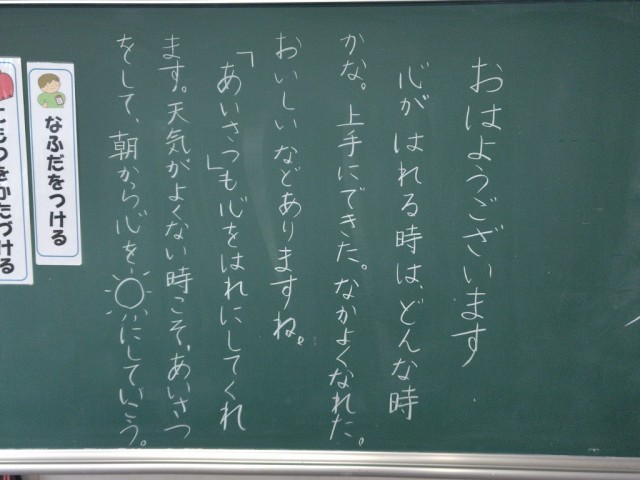 おはようございます
心がはれる時は、どんな時
かな。上手にできた。なかよくなれた。
おいしいなどありますね。
「あいさつ」も心をはれにしてくれ
ます。天気がよくない時こそ、あいさつ
をして、朝から心を☀にしていこう。
なふだをつける
にもつをかたづける